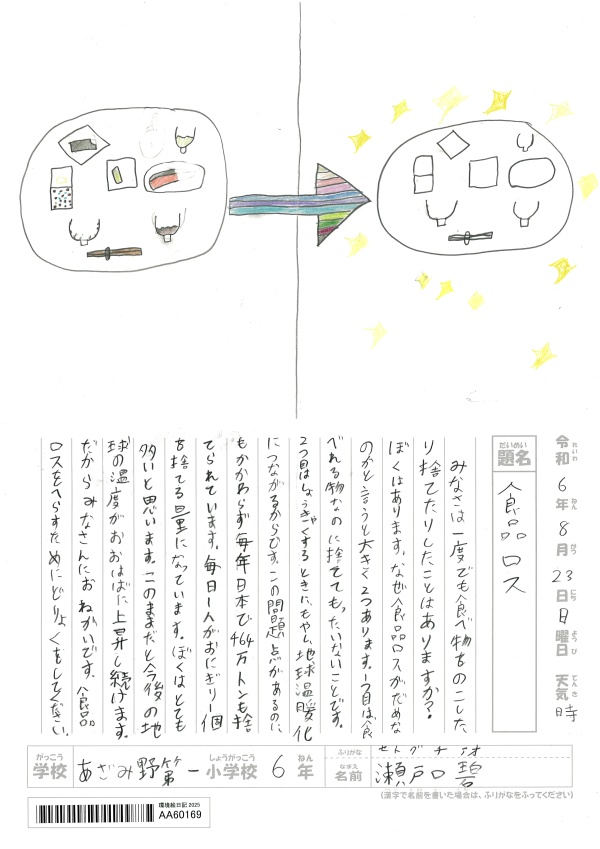 令和れいわ 6年ねん 8月がつ 23日にち 日曜日ようび 天気てんき 晴
題名だいめい
食品ロス
みなさは一度でも食べ物をのこした
り捨てたりしたことはありますか?
ぼくはあります。なぜ食品ロスがだめな
のかと言うと大きく2つあります。1つ目は、食
べれる物なのに捨てて、もったいないことです。
2つ目はしょうきゃくするときに、もやし、地球温暖化
につながるからです。この問題点があるのに
もかかわらず毎年日本で464万トンも捨
てられています。毎日1人がおにぎり一個
を捨てる量になっています。ぼくはとても
多いと思います。このままだと今後の地
球の温度がおおはばに上昇し続けます。
だからみなさんにおねがいです。食品
ロスをへらすためにどりょくをしてください。
学校がっこう あざみ野第一小学校しょうがっこう 6年ねん
ふりがな セトグチ アオ
名前なまえ 瀬戸口 碧
(漢字で名前を書いた場合は、ふりがなをふってください)
環境絵日記 2025
AA60169